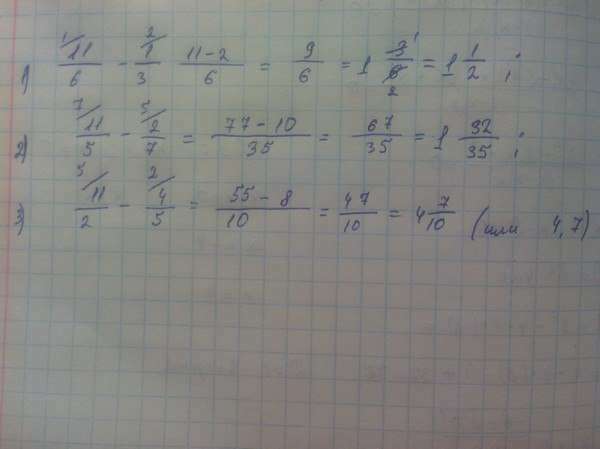 1) ¹/11/6 - ²/1/3 11-2/6 = 9/6 = 1 3/6 ¹ ₂ = 1 1/2 ;
2) ⁷/11/5 - ⁵/2/7 = 77-10/35 = 67/35 = 1 32/35 ;
3) ⁵/11/2 - ²/4/5 = 55-8/10 = 47/10 = 4 7/10 (или 4,7)